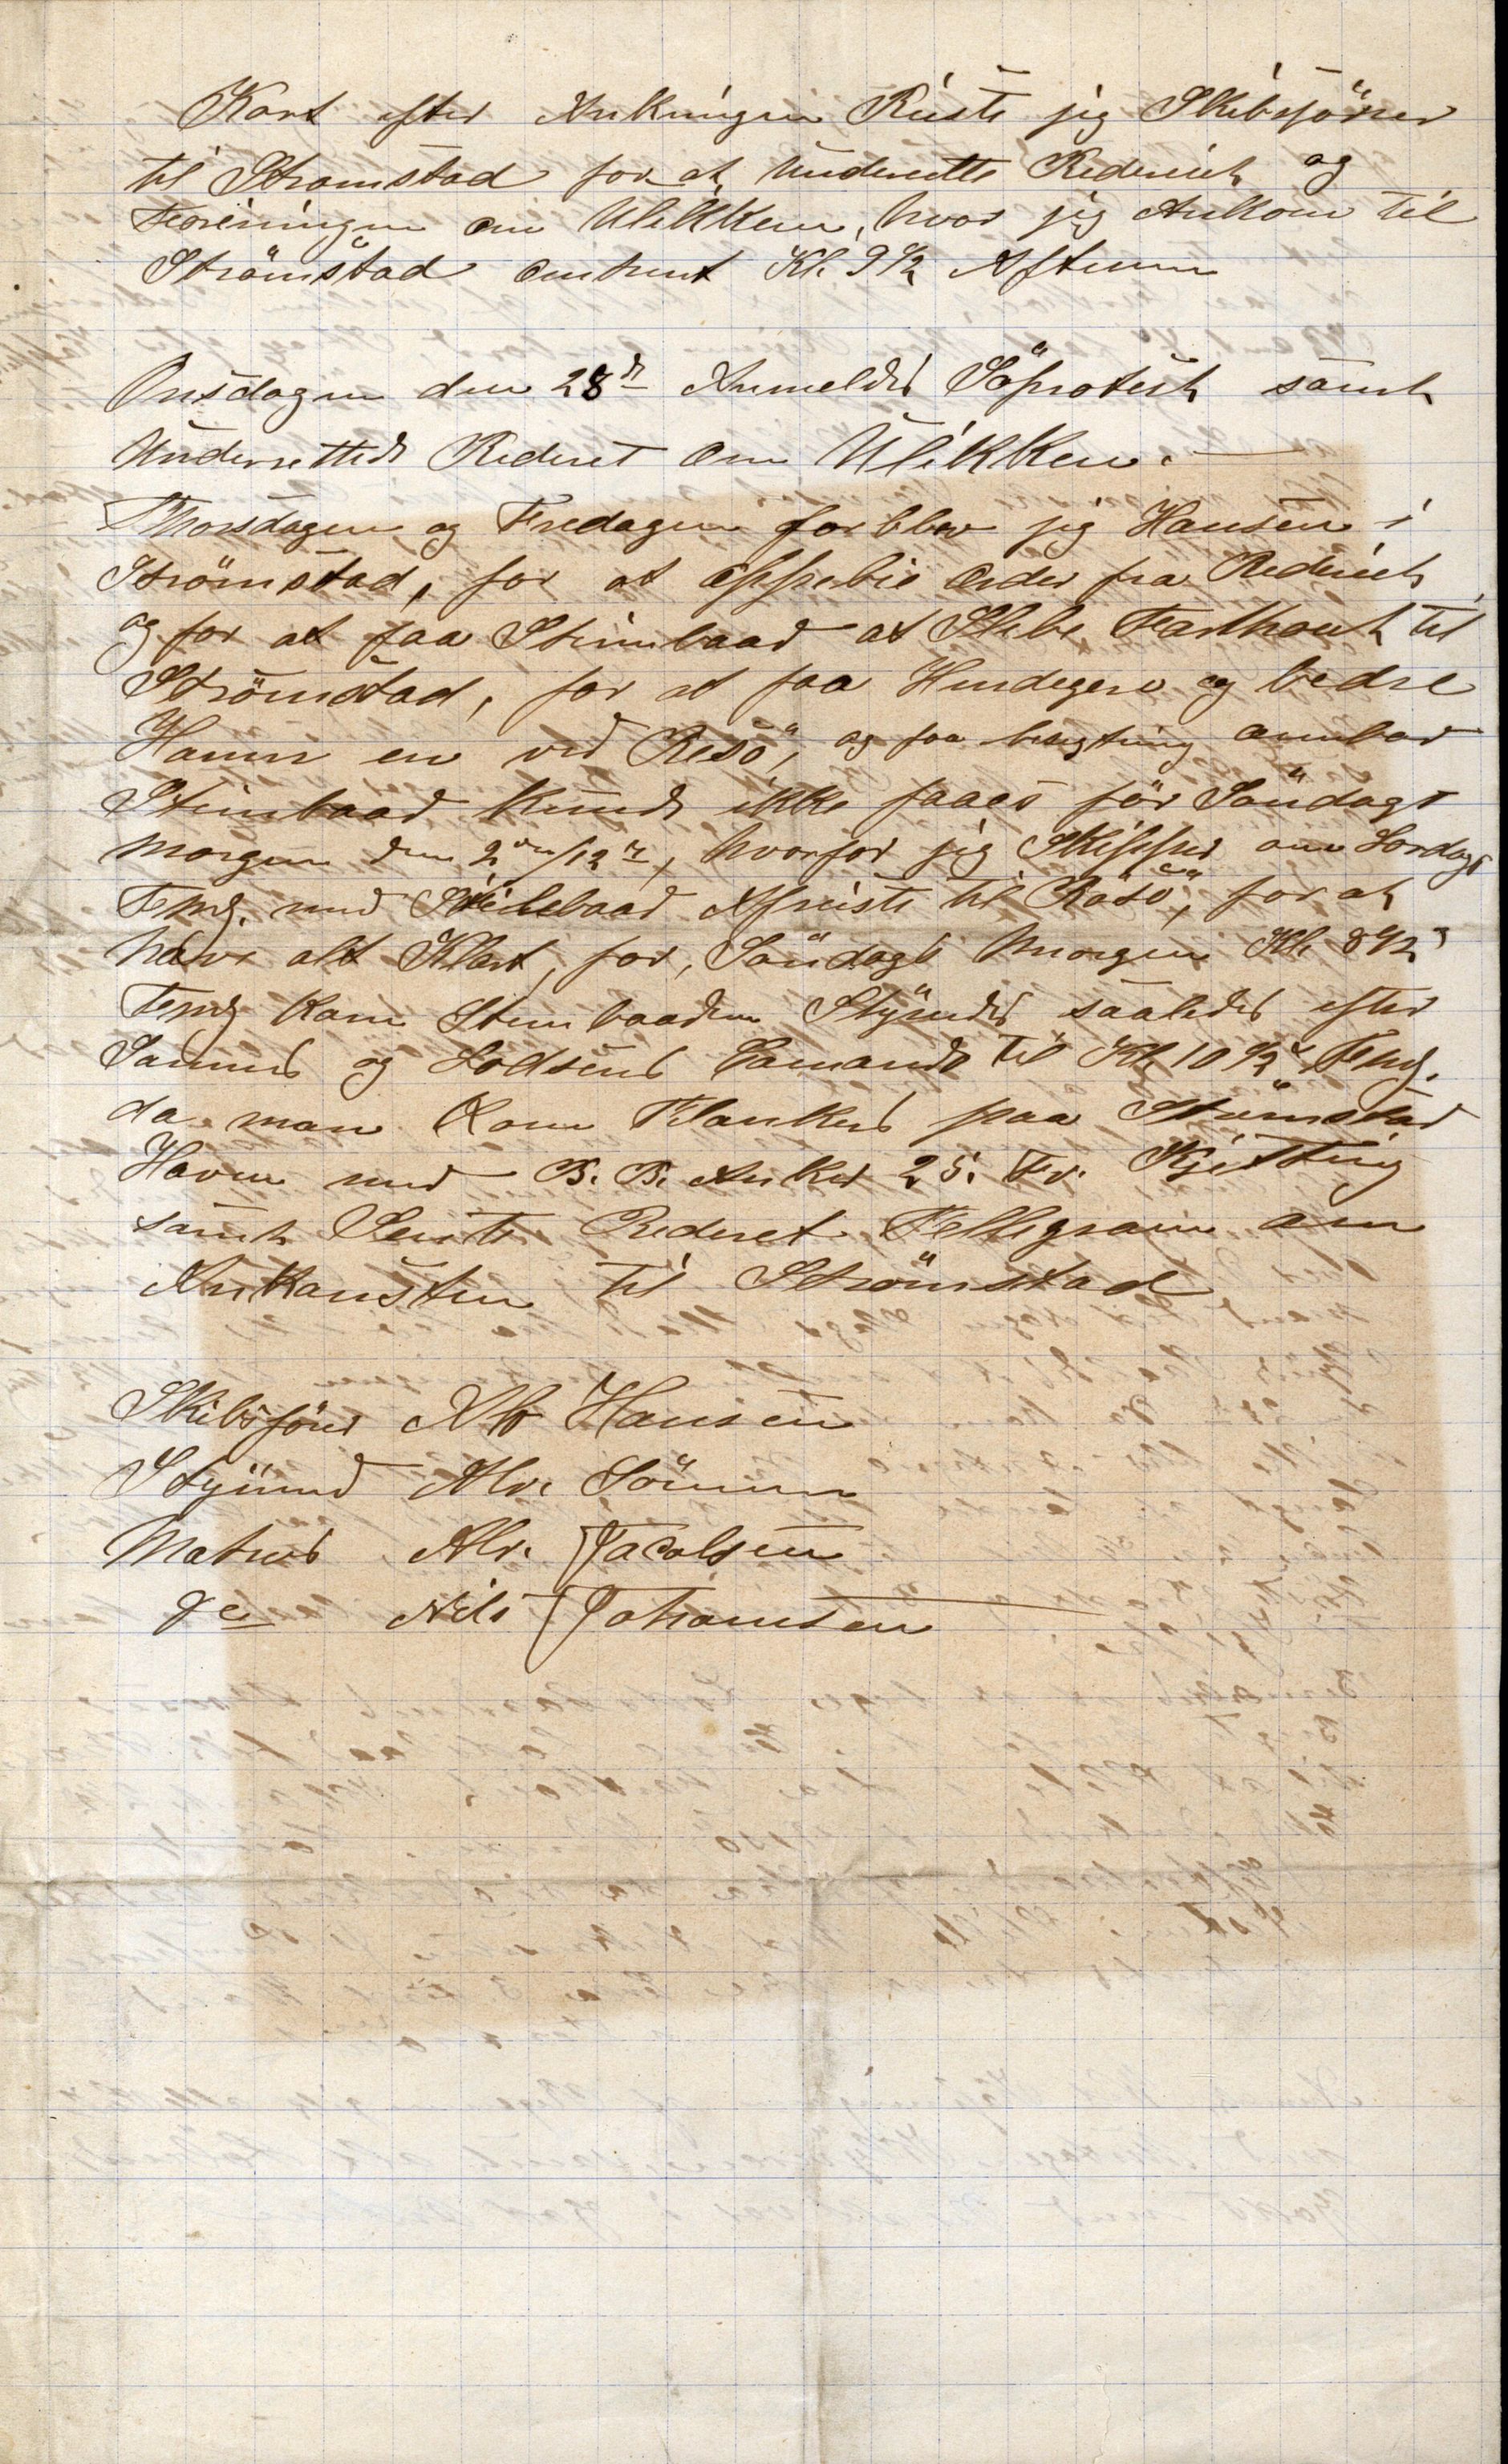 Kort efter Ankningen Reiste jig Skibsförer
til Stromstad for at Underrette Rederiet og
Foreiningen om Ulikken, hvor jig Ankom til
Strömstad omtrent Kl. 9 1/2 Aftenen
Onsdagen den 28de Anmeldes Söprotest samt
Underrettede Rederet om Ulikken.
Thorsdagen og Fredagen forblev jig Hansen i
Strömstad, for at oppebie Order fra Rederiet,
og for at faa Stimbaad at Slebe Farthöut til
Strömstad, for at faa Hendegere og bedre
Havn en ved Resö, og faa bragt ombord
Stimbaad kunde ikke faaes för Söndags
morgen den 2den/12te, hvorfor jig Skipper om Lordags
Fmd. med Seilebaad Afreiste til Rösö, for at
have alt Klart, for, Söndags Morgen Kl. 8 1/2
Fmd kom Stimbaaden Styrede saaledes efter
Sammes og Lodsens Comando til Kl 10 1/2 Fmd.
da man kom Til Ankers paa Strömstad
Havn med B. B. Anker 25. Fv. Kjetting
samt Sente Rederet Tellegram om
Ankomsten til Strömstad
Skibsförer Ab Hansen
Styrmd Alv. Sörensen
Matros Alv. Jacobsen
do Nils Johansen